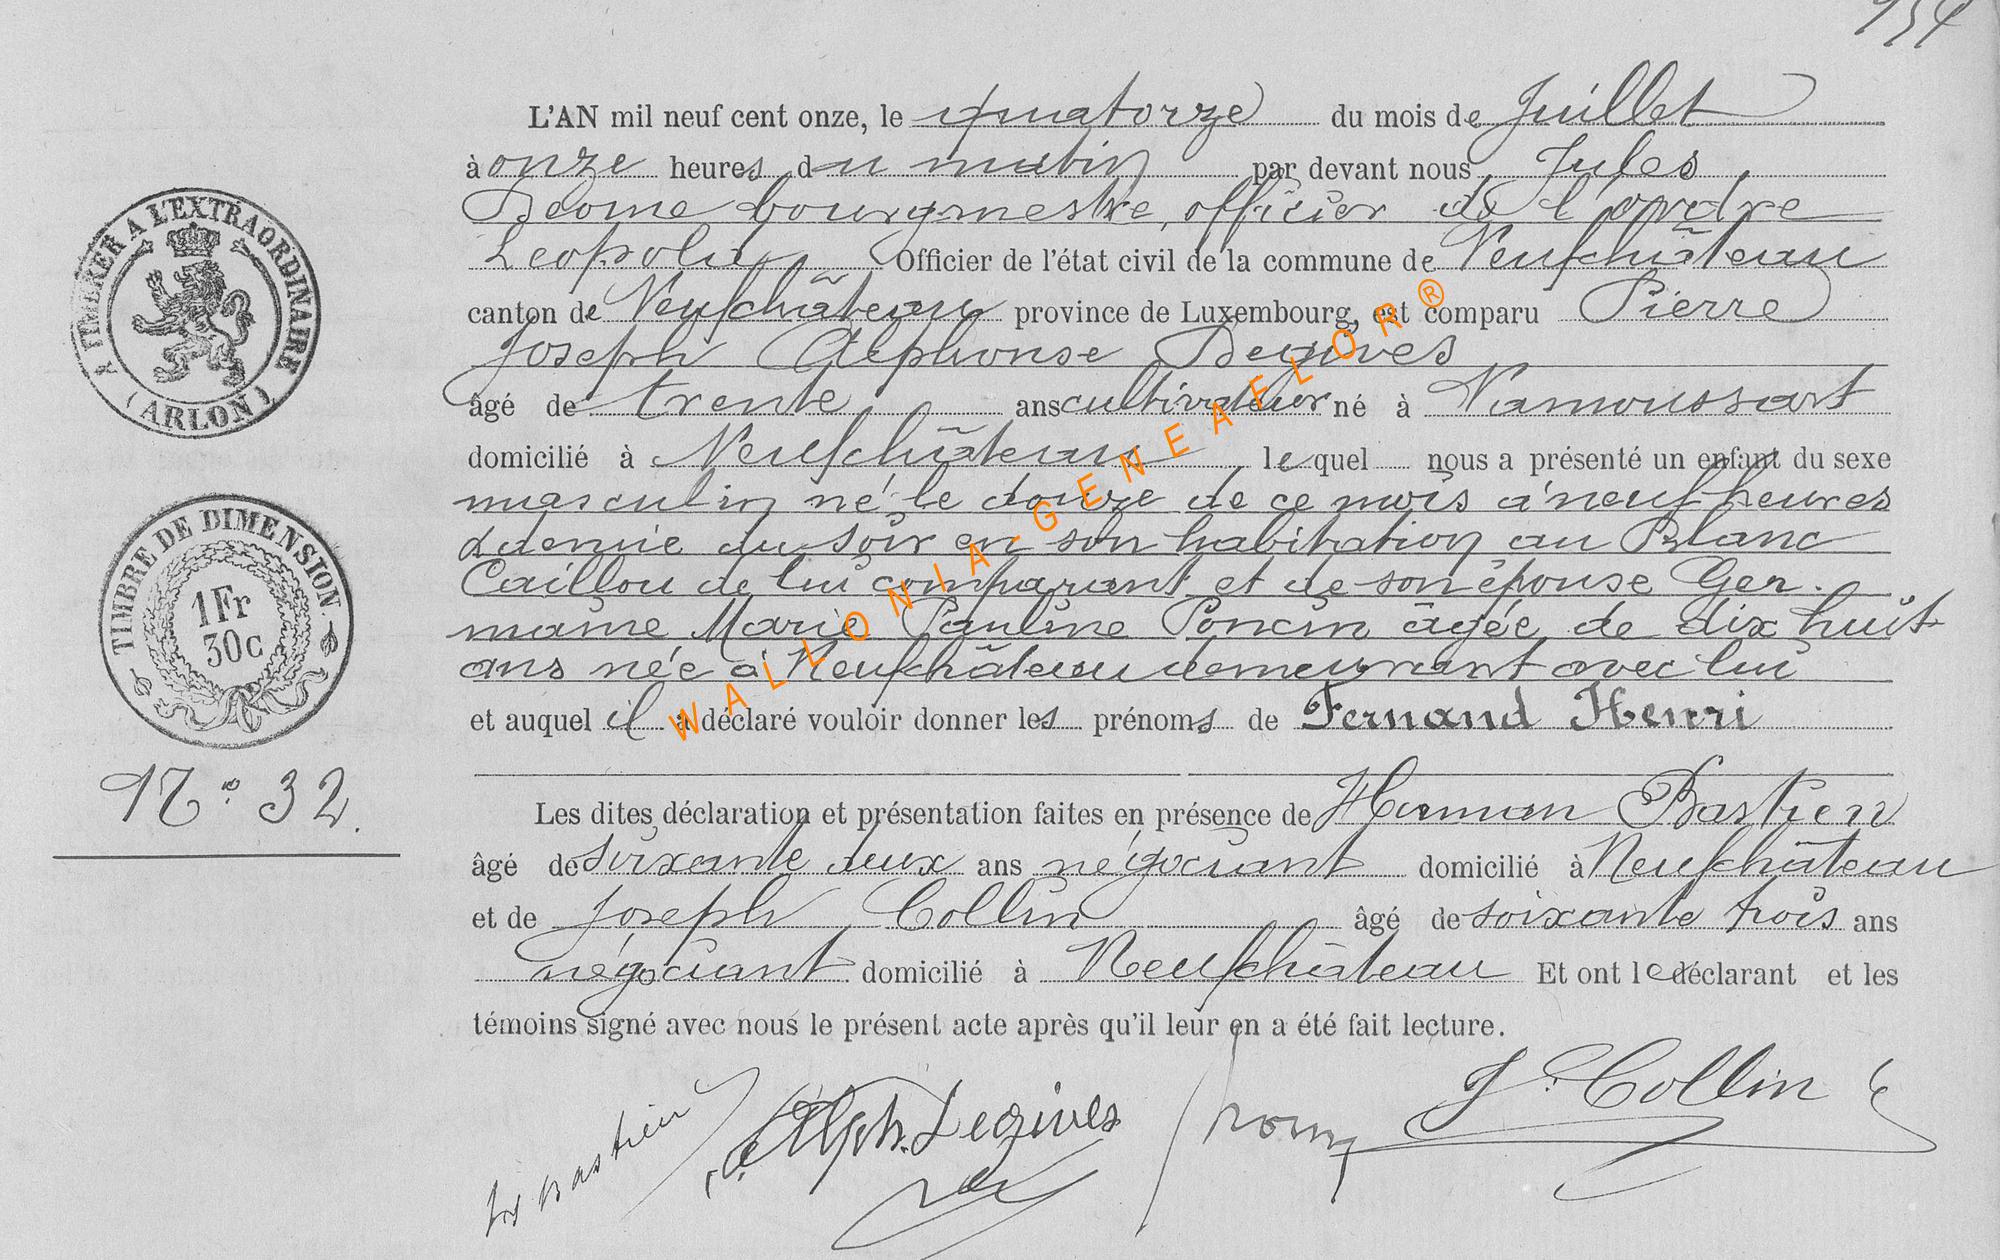 L'AN mil neuf cent onze, le quatorze du mois de Juillet
à onze heures du matin par devant nous Jules
Deome bourgmestre, officier de l'ordre
Léopold, Officier de l'état civil de la commune de Neufchâteau
canton de Neufchâteau province de Luxembourg, est comparu Pierre
Joseph Alphonse Degives
âgé de trente ans cultivateur né à Namoussart
domicilié à Neufchâteau lequel nous a présenté un enfant du sexe
masculin né le douze de ce mois à neuf heures
& demie du soir en son habitation au Blanc
Caillou de lui comparant et de son épouse Ger-
maine Marie Pauline Poncin âgée de dix huit
ans née à Neufchâteau demeurant avec lui
et auquel il a déclaré vouloir donner les prénoms de Fernand Henri
Les dites déclaration et présentation faites en présence de Herman Bastien
âgé de soixante deux ans négociant domicilié à Neufchâteau
et de Joseph Collin âgé de soixante trois ans
négociant domicilié à Neufchâteau Et ont le déclarant et les
témoins signé avec nous le présent acte après qu'il leur en a été fait lecture.
Bastien Alph. Degives J. Collin
A TIMBRER A L'EXTRAORDINAIRE
(ARLON)
TIMBRE DE DIMENSION
1 Fr
30c
N° 32.
WALLONIA-GENEAFLOR®